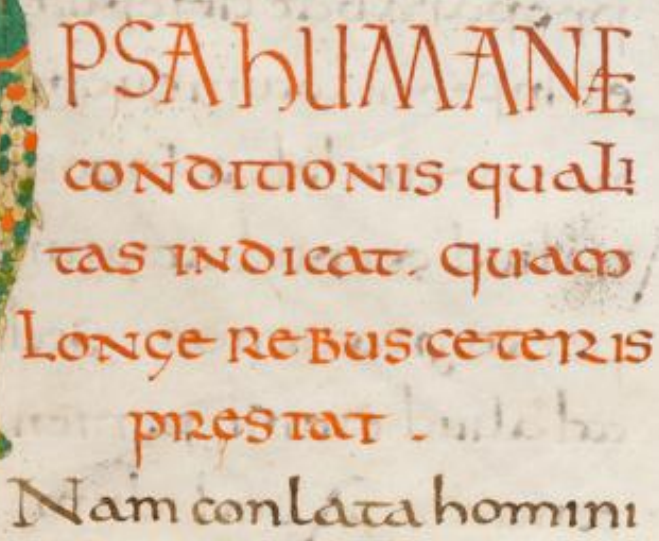 PSA hUMANÆ
CONDITIONIS QUALI
TAS INDICAT. QUAM
LONGE REBUS CETERIS
PRĘSTAT.
Nam conlata homini